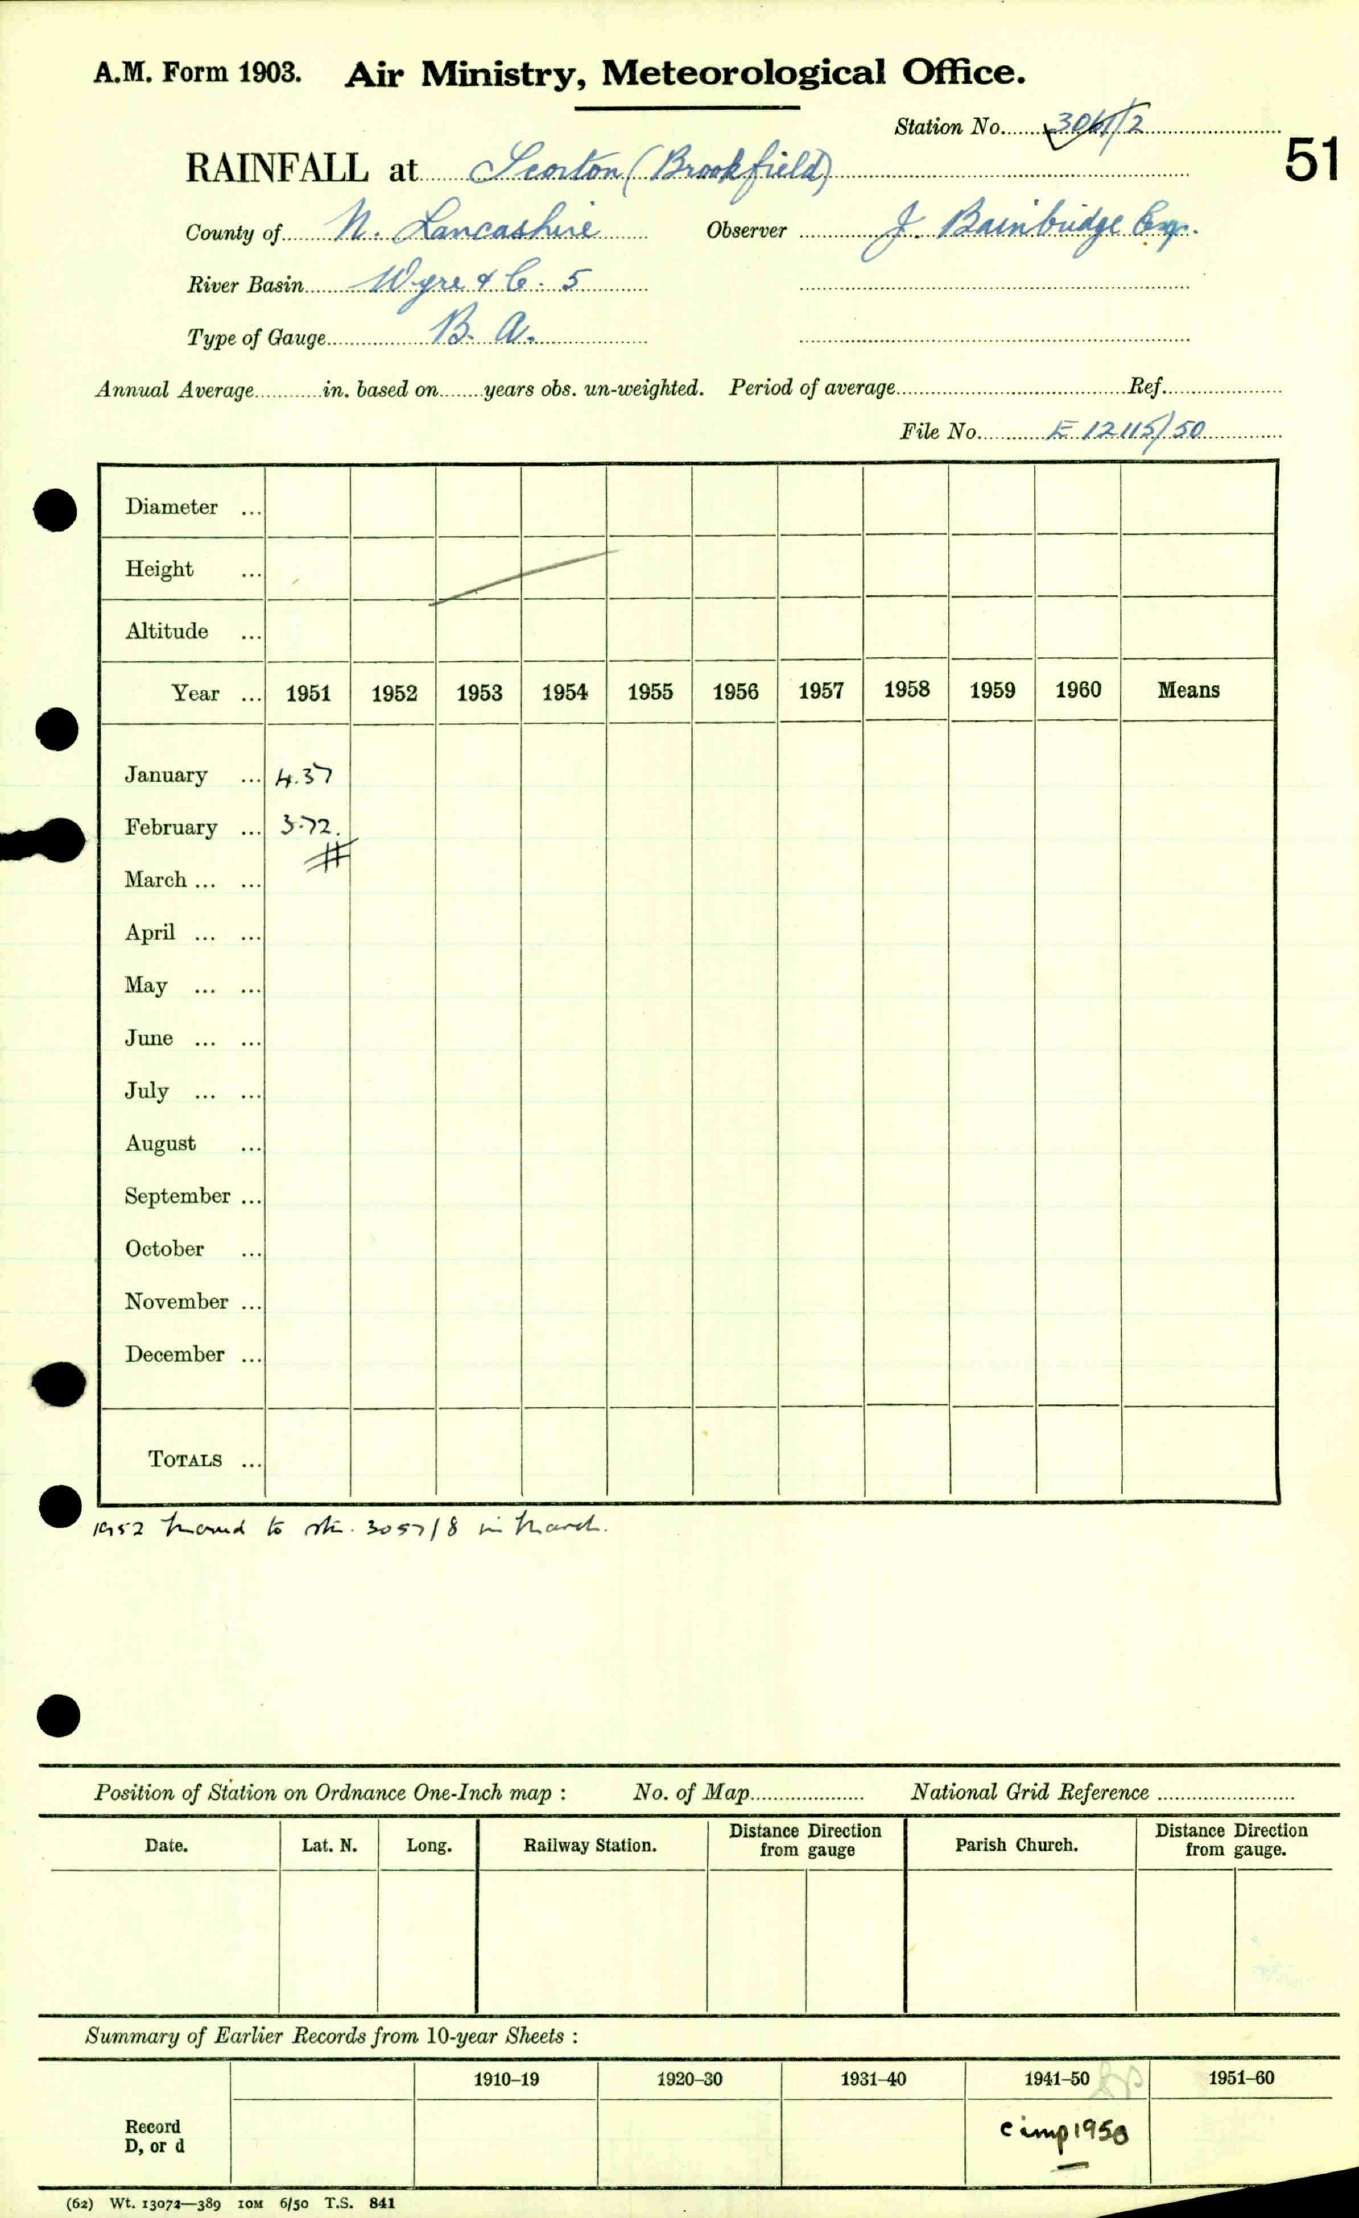 A.M. Form 1903. Air Ministry, Meteorological Office.
Station No. 3061/2
51
RAINFALL at Scorton (Brookfield)
County of N. Lancashire Observer J. Bainbridge Esq.
River Basin Wyre & C. 5
Type of Gauge B. A.
Annual Average in. based on years obs. un-weighted. Period of average Ref.
File No. E 12115/50
Diameter ...
Height ...
Altitude ...
Year ... 1951 1952 1953 1954 1955 1956 1957 1958 1959 1960 Means
January ... 4.37
February ... 3.72.
March ... ...
April ... ...
May ... ...
June ... ...
July ... ...
August ...
September ...
October ...
November ...
December ...
TOTALS ...
1952 moved to stn. 3057/8 in March.
Position of Station on Ordnance One-Inch map : No. of Map National Grid Reference
Date. Lat. N. Long. Railway Station. Distance from Direction gauge Parish Church. Distance from Direction gauge.
Summary of Earlier Records from 10-year Sheets :
1910–19 1920–30 1931–40 1941–50 1951–60
Record
D, or d
c imp 1950
(62) Wt. 13072—389 10M 6/50 T.S. 841